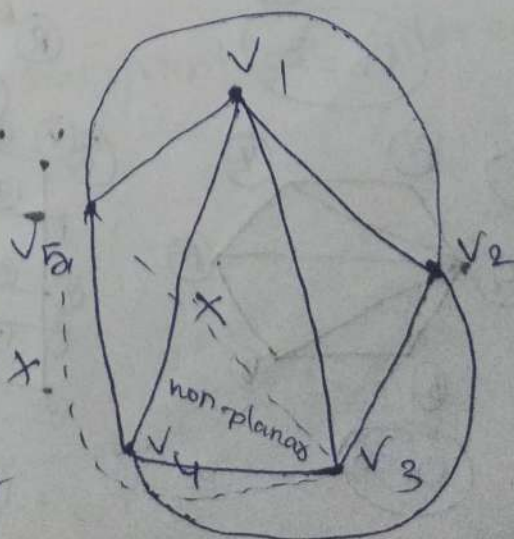 V1
V5
V2
X
X
non-planar
V4
V3